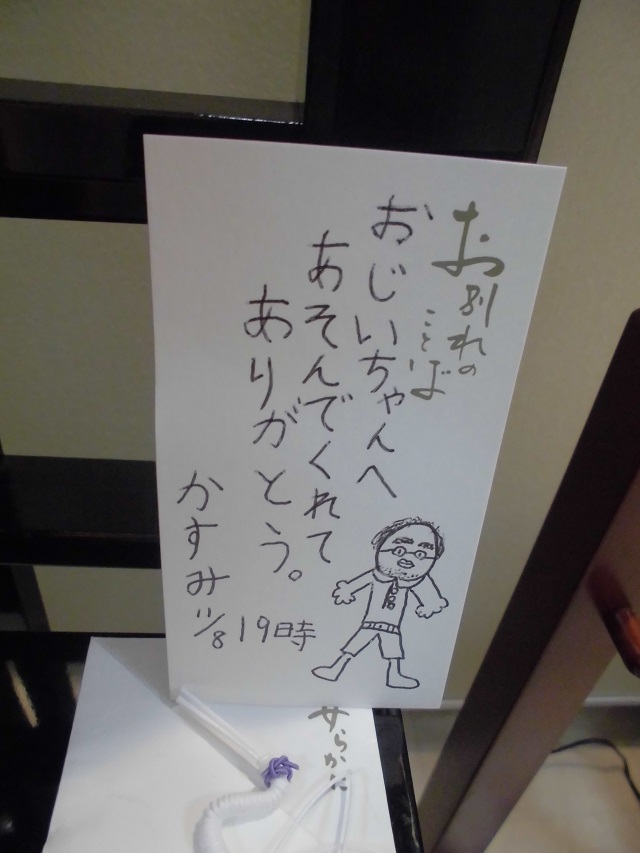 お別れの
ことば
おじいちゃんへ
あそんでくれて
ありがとう。
かすみ
11/8 19時
安らかに